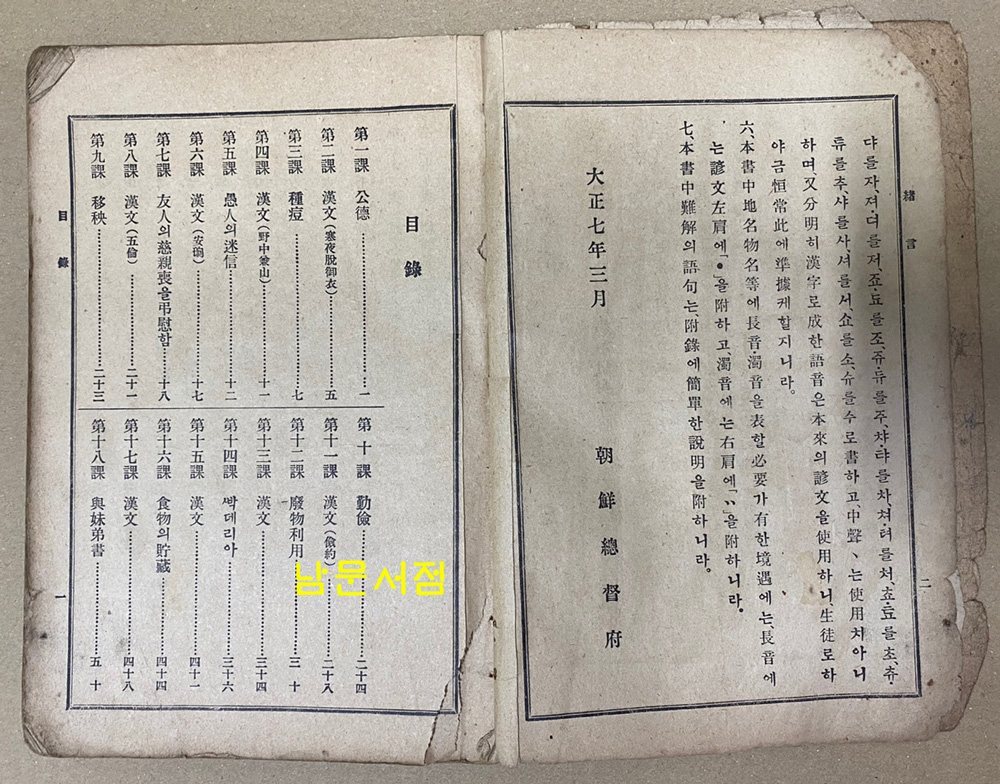 緖言
댜를자,져·뎌를저,죠·됴를조,쥬·듀를주,챠·탸를차,쳐·텨를처,쵸·툐를초,츄·
튜를추,샤를사,셔를서,쇼를소,슈를수로書하고,中聲、는使用치아니
하며,又分明히漢字로成한語音은本來의諺文을使用하니,生徒로하
야금恒常此에準據케할지니라。
六、本書中地名物名等에長音·濁音을表할必要가有한境遇에는,長音에
는諺文左肩에「●」을附하고,濁音에는右肩에「〃」을附하니라。
七、本書中難解의語句는,附錄에簡單한說明을附하니라。
大正七年三月
朝鮮總督府
二
目錄
第一課 公德 一
第二課 漢文(寒夜脫御衣) 五
第三課 種痘 七
第四課 漢文(野中兼山) 十一
第五課 愚人의迷信 十二
第六課 漢文(安珦) 十七
第七課 友人의慈親喪을弔慰함 十八
第八課 漢文(五倫) 二十一
第九課 移秧 二十三
第十課 勤儉 二十四
第十一課 漢文(儉約) 二十八
第十二課 廢物利用 三十
第十三課 漢文 三十四
第十四課 ᄲᅡᆨ데리아 三十六
第十五課 漢文 四十一
第十六課 食物의貯藏 四十四
第十七課 漢文 四十八
第十八課 與妹弟書 五十
目錄
一
남문서점